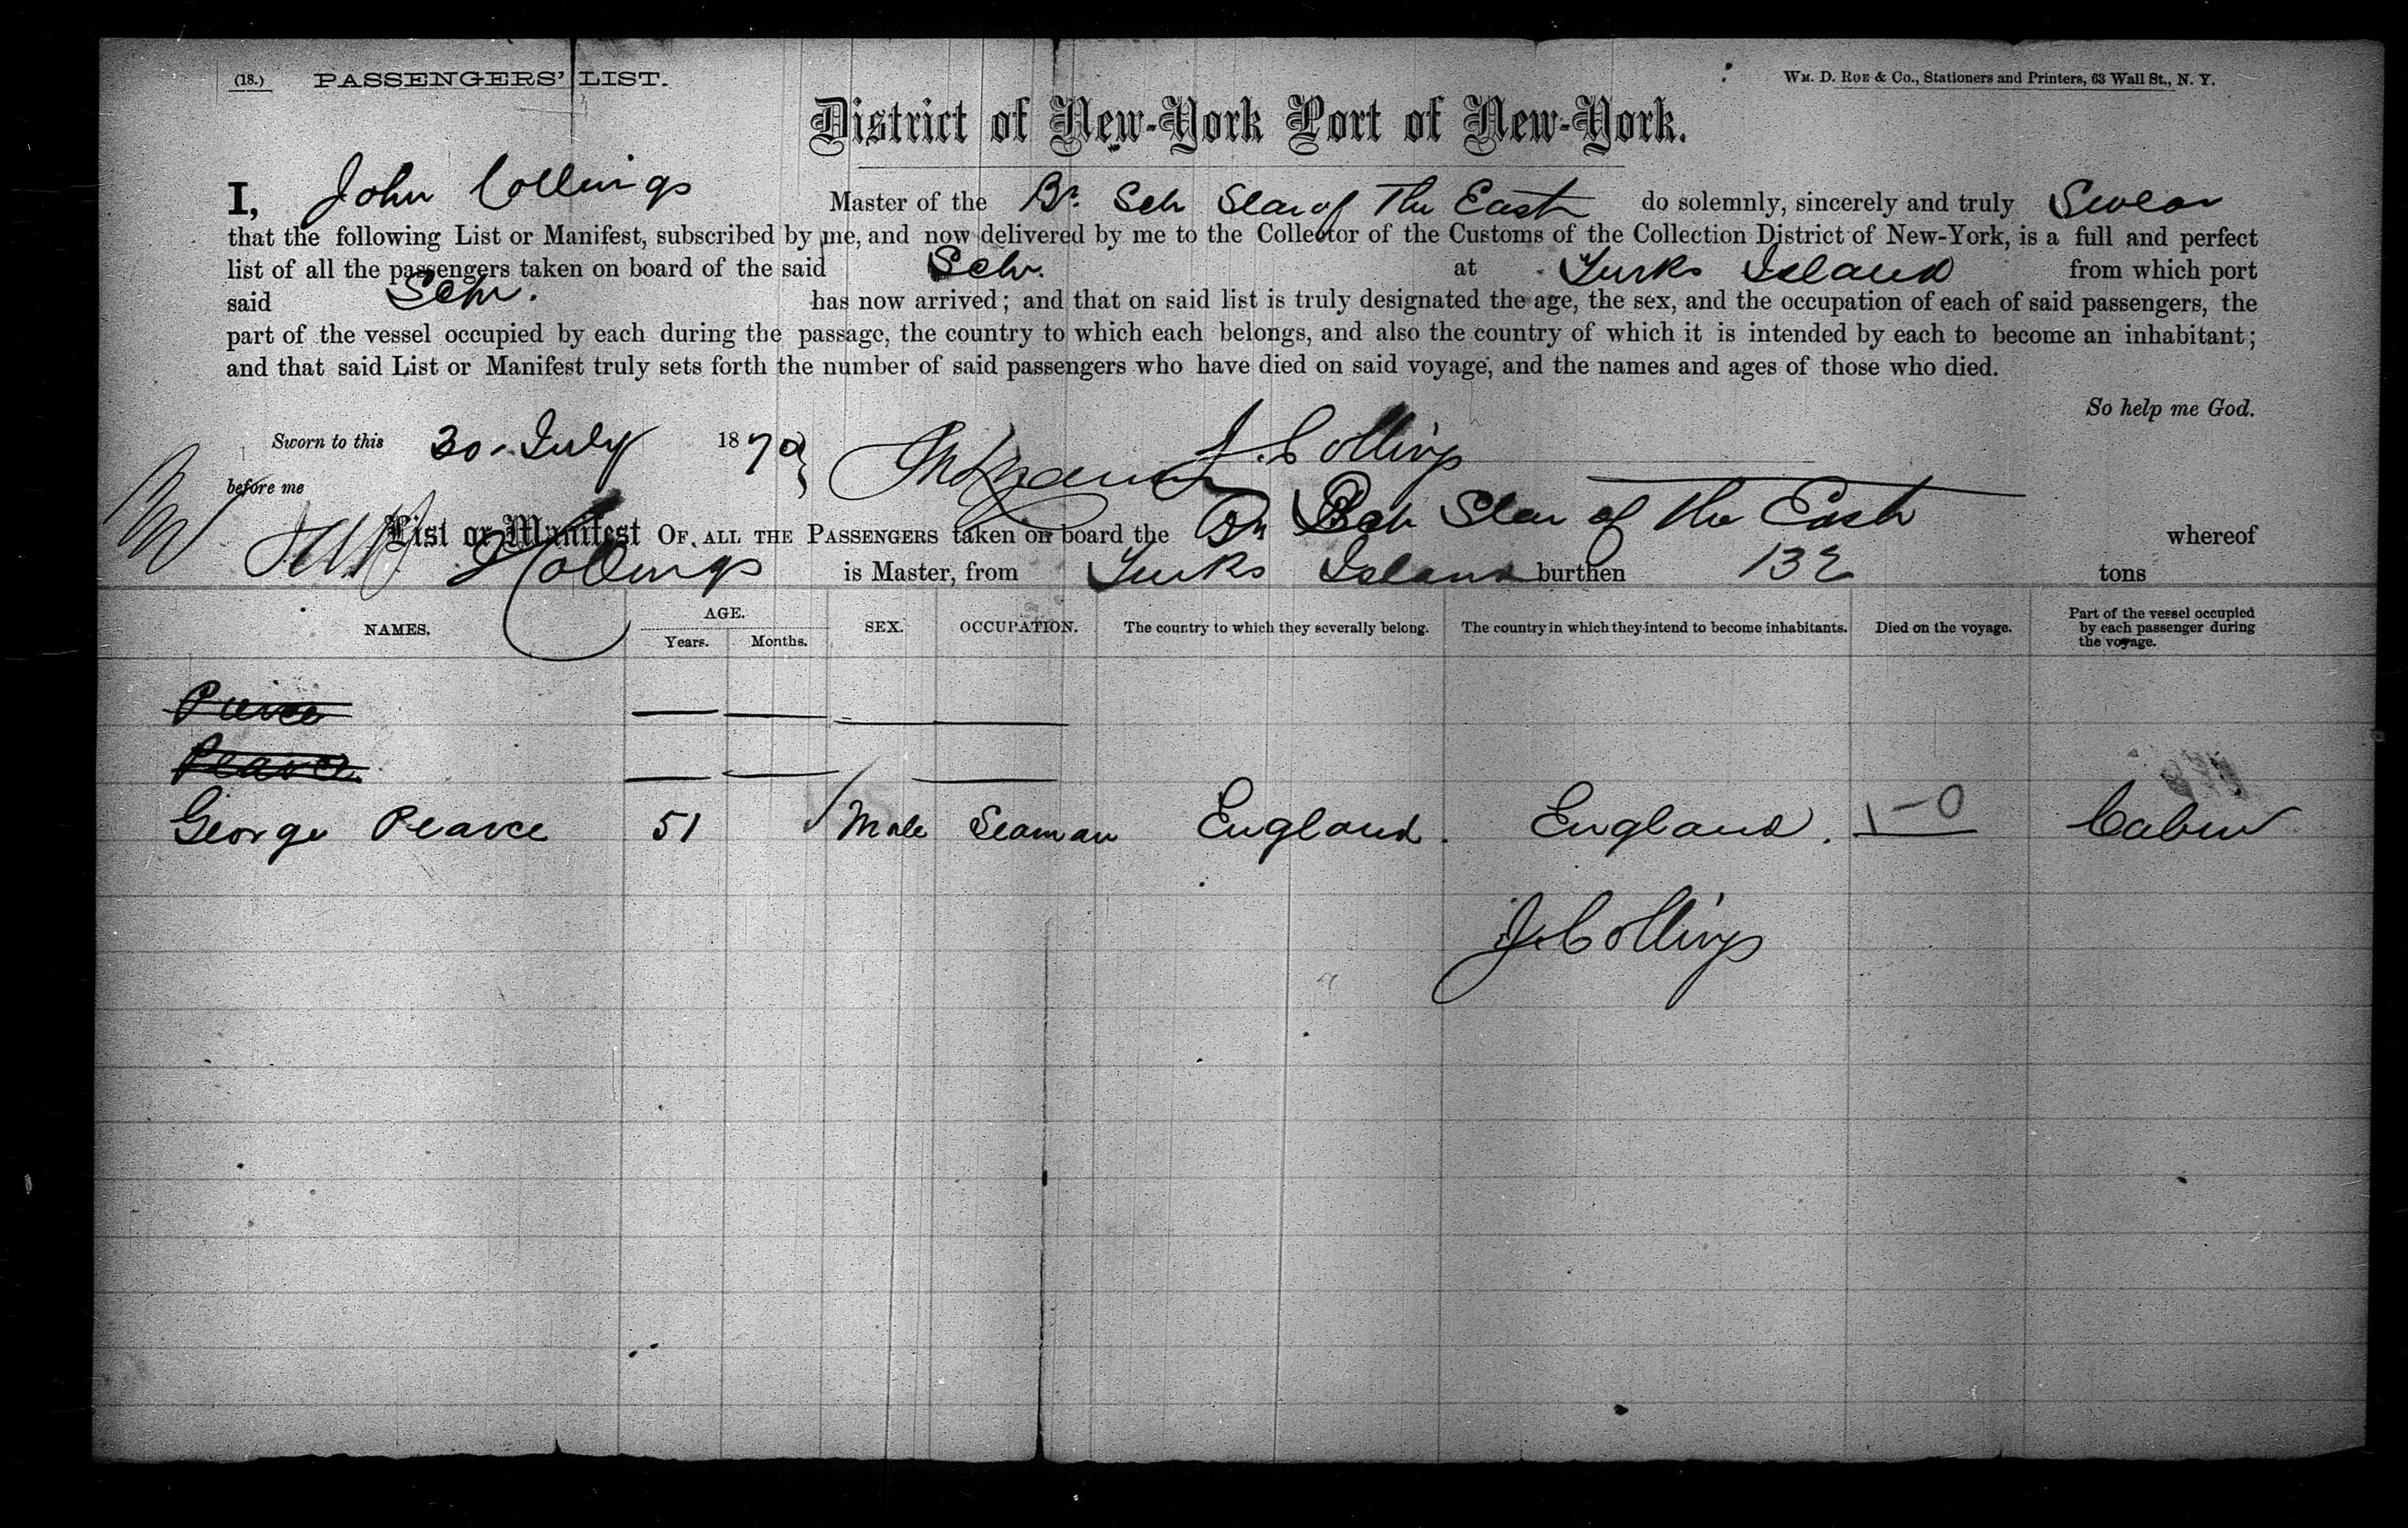 (18.) PASSENGERS' LIST. WM. D. ROE & Co., Stationers and Printers, 63 Wall St., N. Y.
District of New-York Port of New-York.
I, John Collings Master of the Br. Sch Star of The East do solemnly, sincerely and truly Swear
that the following List or Manifest, subscribed by me, and now delivered by me to the Collector of the Customs of the Collection District of New-York, is a full and perfect
list of all the passengers taken on board of the said Schr. at Turks Island from which port
said Schr. has now arrived; and that on said list is truly designated the age, the sex, and the occupation of each of said passengers, the
part of the vessel occupied by each during the passage, the country to which each belongs, and also the country of which it is intended by each to become an inhabitant;
and that said List or Manifest truly sets forth the number of said passengers who have died on said voyage, and the names and ages of those who died.
So help me God.
Sworn to this 30 July 187 J. Collings
before me
List or Manifest OF ALL THE PASSENGERS taken on board the Br Sch Star of the East whereof
Collings is Master, from Turks Island burthen 132 tons
NAMES. AGE. Years. Months. SEX. OCCUPATION. The country to which they severally belong. The country in which they intend to become inhabitants. Died on the voyage. Part of the vessel occupied by each passenger during the voyage.
Pierce
Pearce
George Pearce 51 Male Seaman England. England. 1-0 Cabin
J. Collings